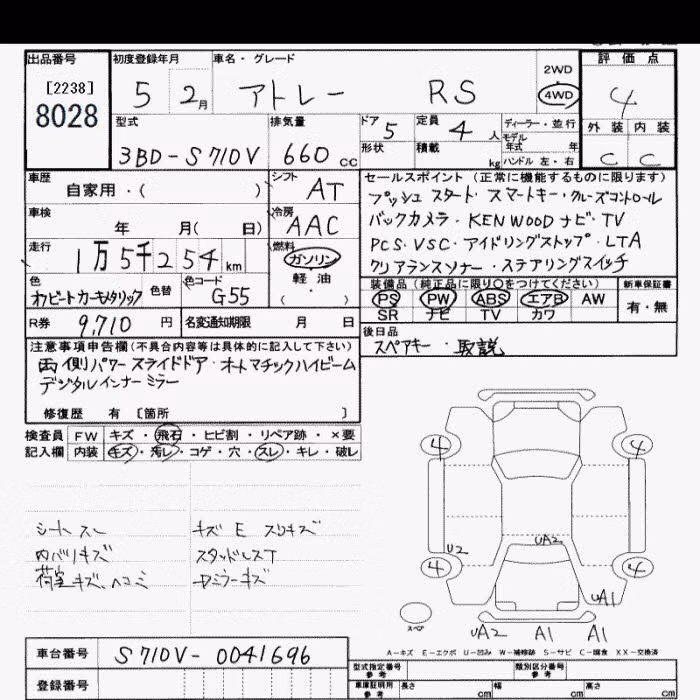 出品番号 初度登録年月 車名・グレード 評価点
[2238]
8028
5 2月 アトレー RS 2WD 4WD 4
型式 排気量 ドア 5 定員 4人 ディーラー・並行 外装 内装
モデル年式 年
3BD-S710V 660cc 形状 積載 kg ハンドル 左・右 C C
車歴 シフト セールスポイント (正常に機能するものに限ります)
自家用・( ) AT プッシュスタート・スマートキー・クルーズコントロール
車検 冷房 バックカメラ・KENWOODナビ・TV
年 月( 日) AAC PCS・VSC・アイドリングストップ・LTA
走行 燃料 クリアランスソナー・ステアリングスイッチ
1万5千254km ガソリン
軽油
( )
色 色替 色コード 装備品 (純正品に限り○をつけてください) 新車保証書
オレビートカーキメタリック G55 PS PW ABS エアB AW 有・無
SR ナビ TV カワ
R券 9,710円 名変通知期限 月 日 後日品
スペアキー・取説
注意事項申告欄(不具合内容等は具体的に記入して下さい)
両側パワースライドドア・オートマチックハイビーム
デジタルインナーミラー
修復歴 有 [箇所 ]
検査員 FW キズ・飛石・ヒビ割・リペア跡・×要
記入欄 内装 キズ・汚レ・コゲ・穴・スレ・キレ・破レ
4 4
シートスレ キズ E スリキズ
U2 UA2
内バリキズ スタッドレスT
荷室キズ、ヘコミ
4 4
UA1
スペア
UA2 A1 A1
A-キズ E-エクボ U-凹み W-補修跡 S-サビ C-腐食 XX-交換済
車台番号 S710V-0041696
型式指定番号 参考 類別区分番号 参考
登録番号 車庫証明用 参考 長さ cm 幅 cm 高さ cm